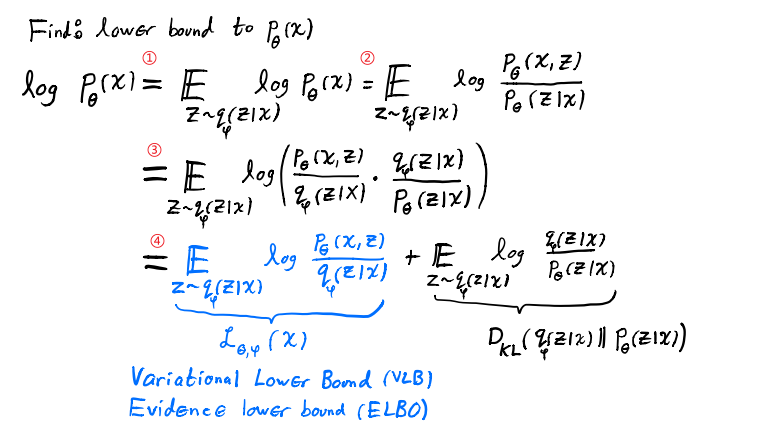 Find: lower bound to P_θ(x)
log P_θ(x) ①= 𝔼_{z~q_φ(z|x)} log P_θ(x) ②= 𝔼_{z~q_φ(z|x)} log P_θ(x,z)/P_θ(z|x)
③= 𝔼_{z~q_φ(z|x)} log(P_θ(x,z)/q_φ(z|x) · q_φ(z|x)/P_θ(z|x))
④= 𝔼_{z~q_φ(z|x)} log P_θ(x,z)/q_φ(z|x) + 𝔼_{z~q_φ(z|x)} log q_φ(z|x)/P_θ(z|x)
ℒ_{θ,φ}(x) D_KL(q_φ(z|x)‖P_θ(z|x))
Variational Lower Bound (VLB)
Evidence lower bound (ELBO)